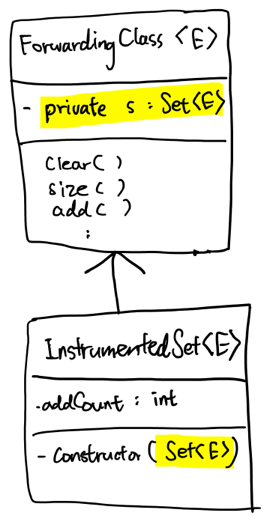 ForwardingClass <E>
- private s : Set<E>
clear( )
size( )
add( )
:
InstrumentedSet<E>
-addCount : int
- Constructor( Set<E>)